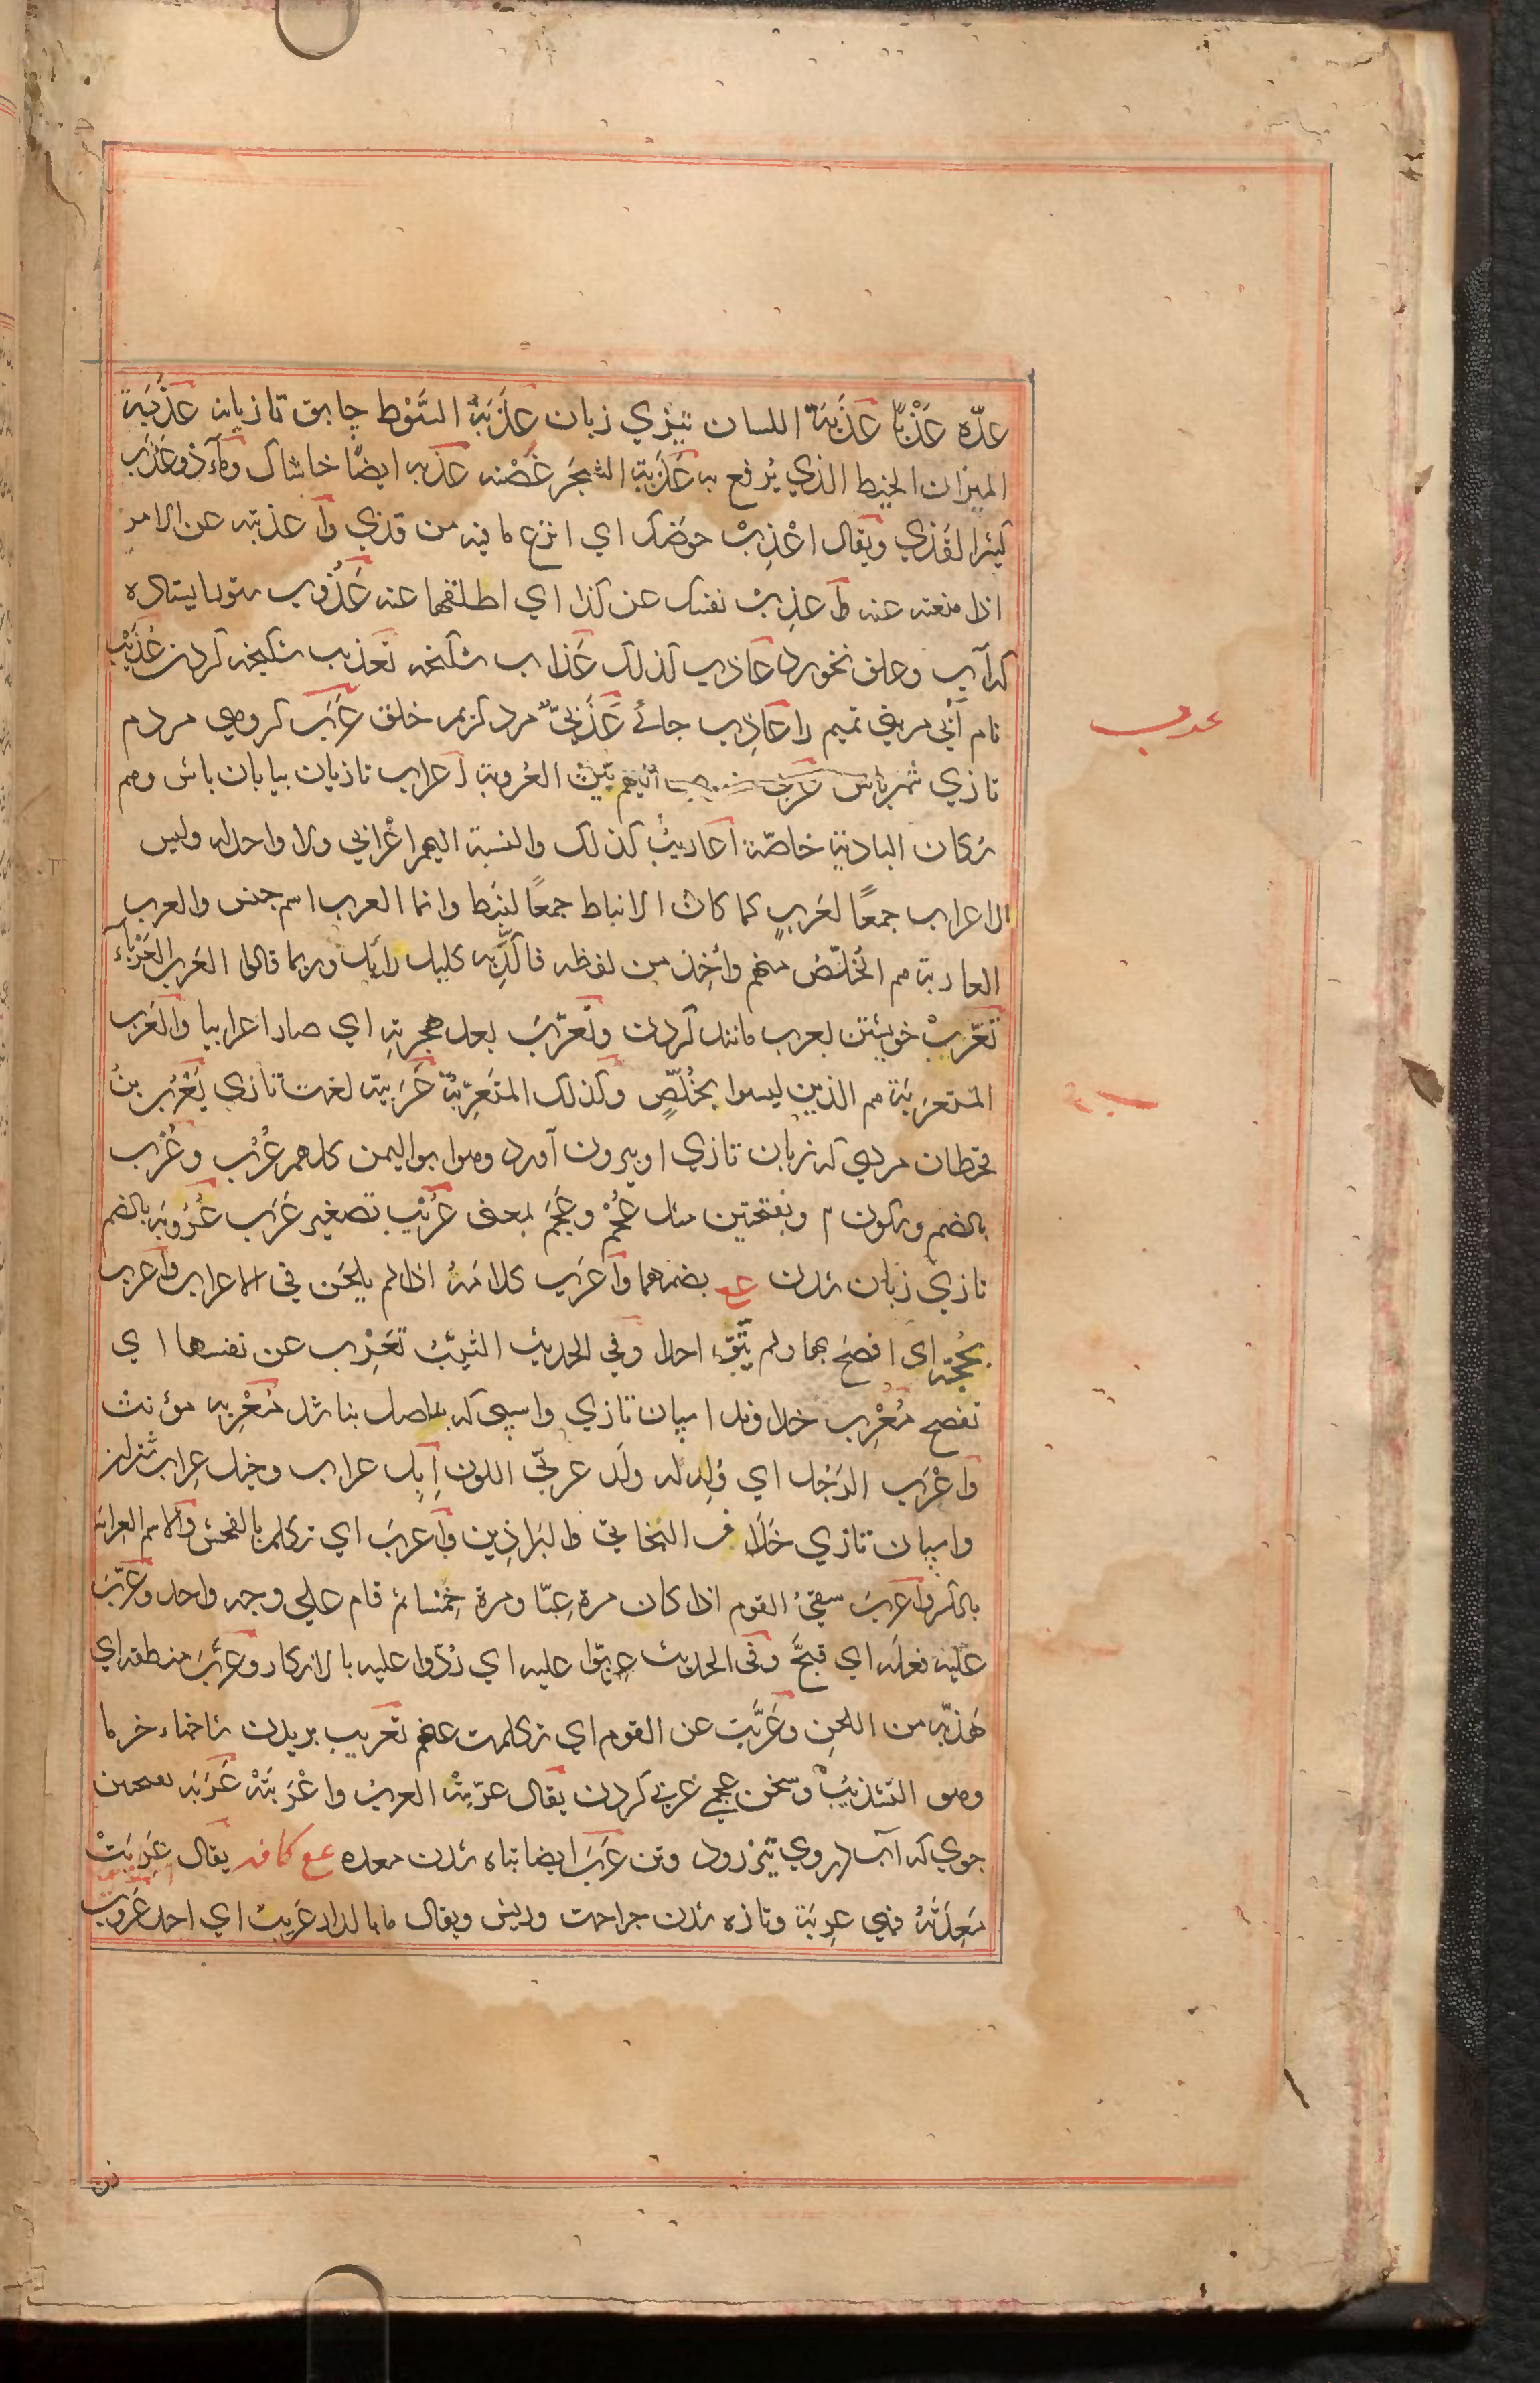 عدّه عَذْبًا عَذَبَة اللسان تيزي زبان عَذَبَةُ السَّوْط چابق تازيانه عَذَبَة
الميزان الخيط الذي يُرفع به عَذَبَة الشجر غُصْنه عذبه ايضًا خاشاك وماءٌ ذو عَذَب
كثير القذي ويقال اعْذِبْ حوضك اي انزع ما فيه من قذي واعذبته عن الامر
اذا منعته عنه واعذِبْ نفسك عن كذا اي اطلقها عنه عَذُوب ستور ايستاده
كه آب وعلف نخورد عاذب كذلك عَذاب شكنجه تعذيب شكنجه كردن عُذَيْب
نام آبي مر بني تميم را عاذِب جائے عَذَبِيّ مرد كريم خلق عَرَب كروهي مردم
تازي شهرباش عربي انهم بيّن العُروبة اعراب تازيان بيابان باش وهم
سكان البادية خاصّة اعاريبُ كذلك والنسبة اليهم اعْرابي ولا واحد له وليس
الاعراب جمعًا لعَربٍ كما كان الانباط جمعًا لنبَط وانما العرب اسم جنس والعرب
العاربة هم الخُلّصُ منهم واُخِذ من لفظه فاكّد به كليل لائل وربما قالوا العَرب العَرْباء
تعرّبْ خويشتن بعرب مانند كردن وتعرّبَ بعد هجرته اي صار اعرابيا والعَرب
المستعرَبة هم الذين ليسوا بخُلّصٍ وكذلك المتَعرِّبة عَرَبية لغت تازي يَعْرُب بنُ
قحطان مردي كه زبان تازي او بيرون آورد وهو ابو اليمن كلهم عُرُب وعُرْب
بالضم وسكون م وبفتحتين مثل عُجْم وعَجَم بمعنى عُرَيْب تصغير عَرَب عُرُوبَة بالضم
تازي زبان شدن عع بضمهما واعَرَب كلامَهُ اذا لم يلحَن في الاعراب واعرب
بحُجّته اي افصَح بها ولم يتّق احدا وفي الحديث الثيّبُ تعَرِب عن نفسها اي
تفصح مُعْرِب خداوند اسپان تازي واسپى كه باصل بنا شد مُعْرِبه مؤنث
واعْرَب الرَجُل اي وُلِد له ولَد عربيّ اللون اِبِل عراب وخيل عِراب شتران
واسپان تازي خَلاف البَخاتي والبَراذِين واعربَ اي تكلم بالفحش والاسم العرابة
بالكسر واعربَ سقيُ القوم اذا كان مرة غِبّا ومرة خِمْسا ثم قام علي وجه واحد وعرّبَ
عَلَيه فعلَه اي قبّحَ وفي الحديث عرّبوا عليه اي رُدّوا عليه بالانكار وعرّبَ منطقه اي
هذّبه من اللحن وعَرّبت عن القوم اي تكلمت عنهم تعريب بريدن شاخهاء خرما
وهو التشذيبُ وسخن عجمي عربي كردن يقال عرّبتْه العربُ واعْرَبَتْه عَرَبَه بفتحتين
جوي كه آب دروي تيز رود وتن عَرَب ايضا تباه شدن معده عع كافه يقال عَرِبَتْ
مَعِدَتُه فهي عرِبَة وتازه شدن جراحت وريش ويقال ما بالدار عَرِيبٌ اي احد عَرُوب